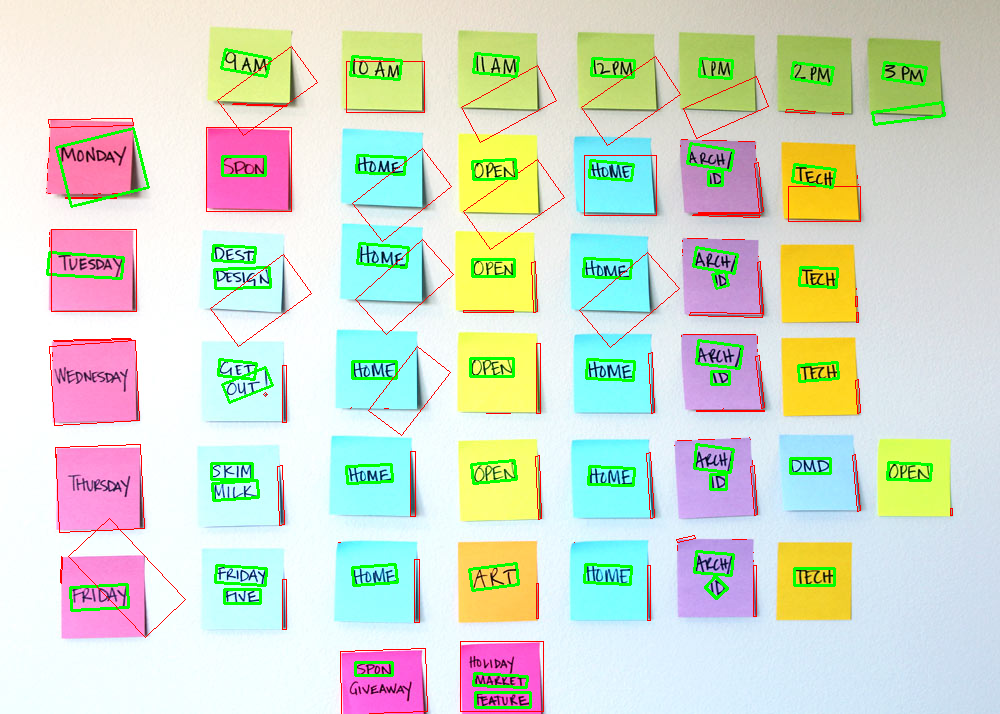 9 AM
10 AM
11 AM
12 PM
1 PM
2 PM
3 PM
MONDAY
SPON
HOME
OPEN
HOME
ARCH/
ID
TECH
TUESDAY
DEST
DESIGN
HOME
OPEN
HOME
ARCH/
ID
TECH
WEDNESDAY
GET
OUT!
HOME
OPEN
HOME
ARCH/
ID
TECH
THURSDAY
SKIM
MILK
HOME
OPEN
HOME
ARCH/
ID
DMD
OPEN
FRIDAY
FRIDAY
FIVE
HOME
ART
HOME
ARCH/
ID
TECH
SPON
GIVEAWAY
HOLIDAY
MARKET
FEATURE